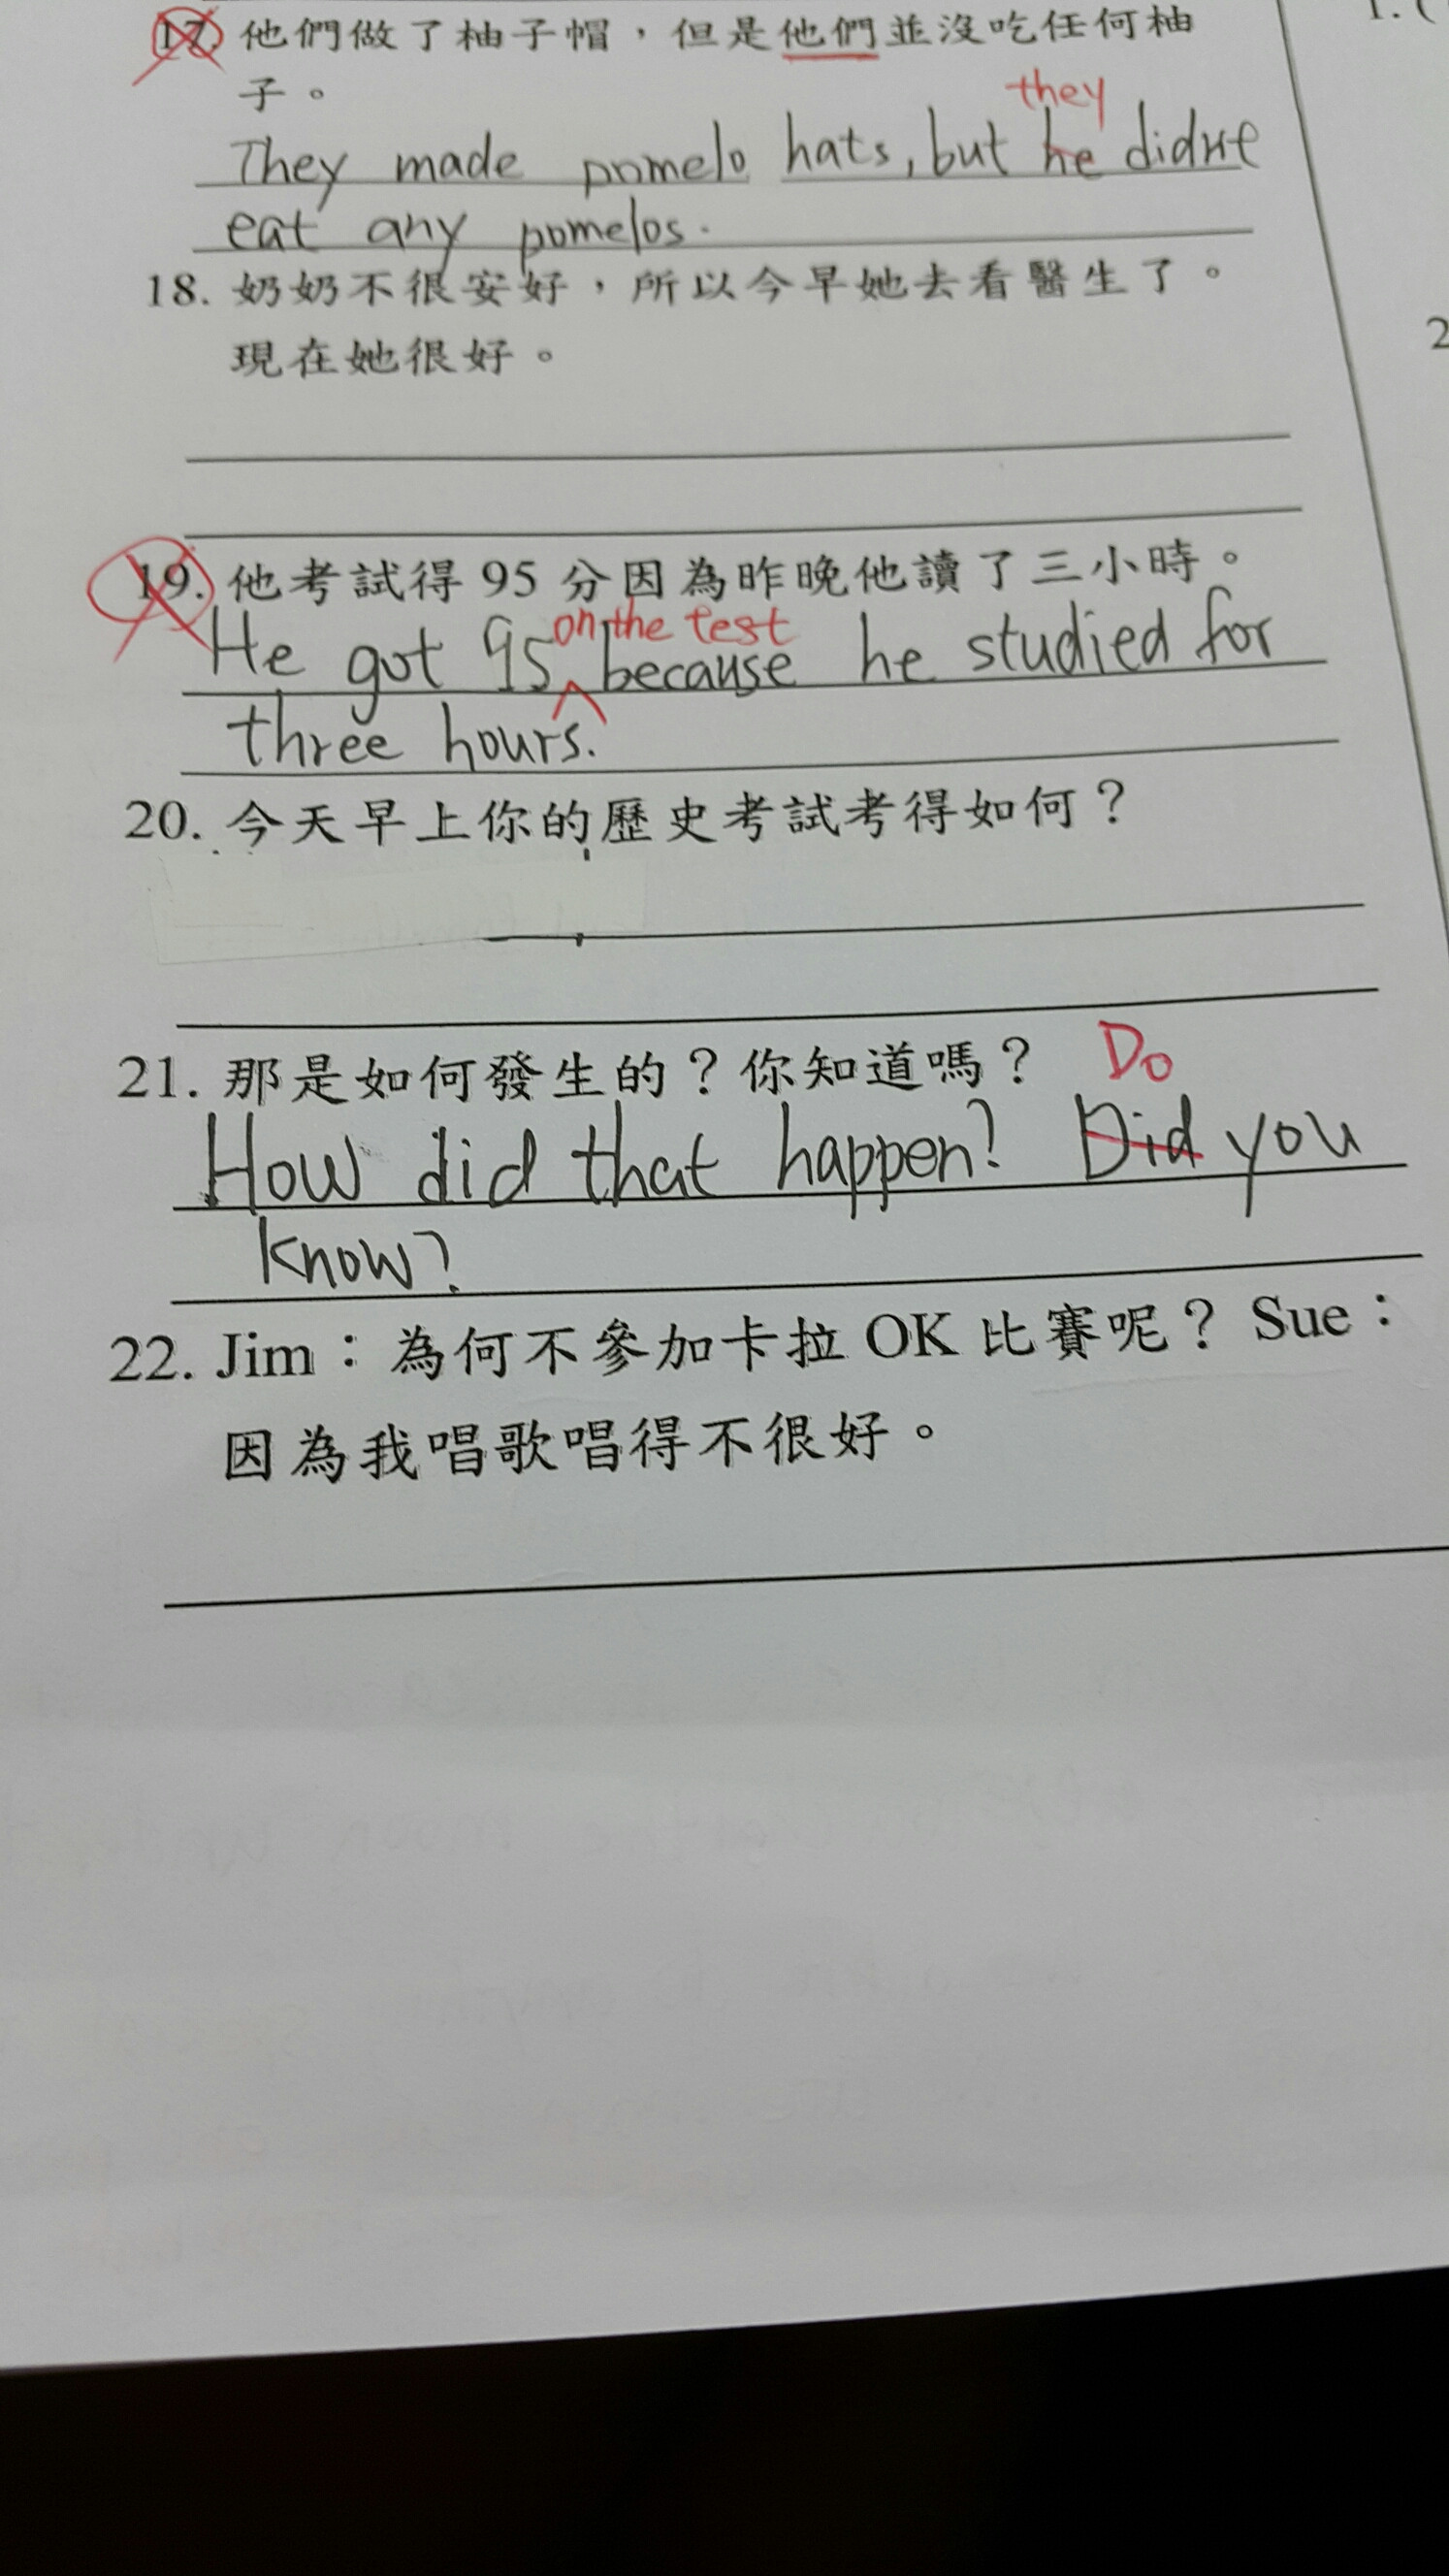 17. 他們做了柚子帽，但是他們並沒吃任何柚
子。
they
They made pomelo hats, but he didn't
eat any pomelos.
18. 奶奶不很安好，所以今早她去看醫生了。
現在她很好。
19. 他考試得 95 分因為昨晚他讀了三小時。
on the test
He got 95 because he studied for
three hours.
20. 今天早上你的歷史考試考得如何？
21. 那是如何發生的？你知道嗎？
Do
How did that happen? Did you
know?
22. Jim：為何不參加卡拉 OK 比賽呢？ Sue：
因為我唱歌唱得不很好。
1. (
2